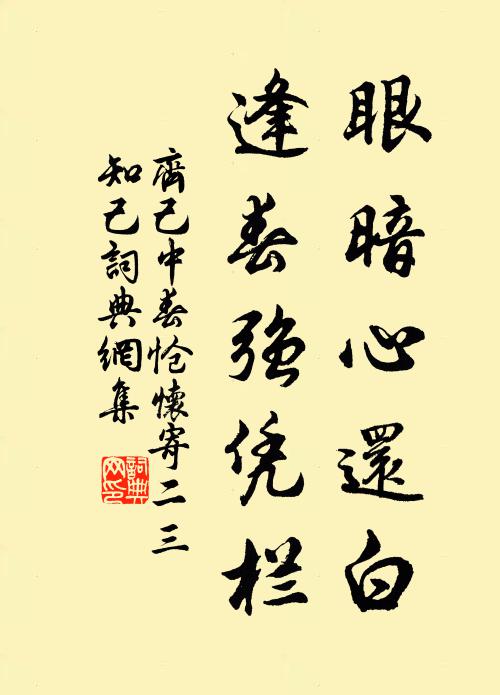 眼暗心還白
逢春強凭栏
齊己中春怆懷寄二三
知己詞典網集
詞典
网印